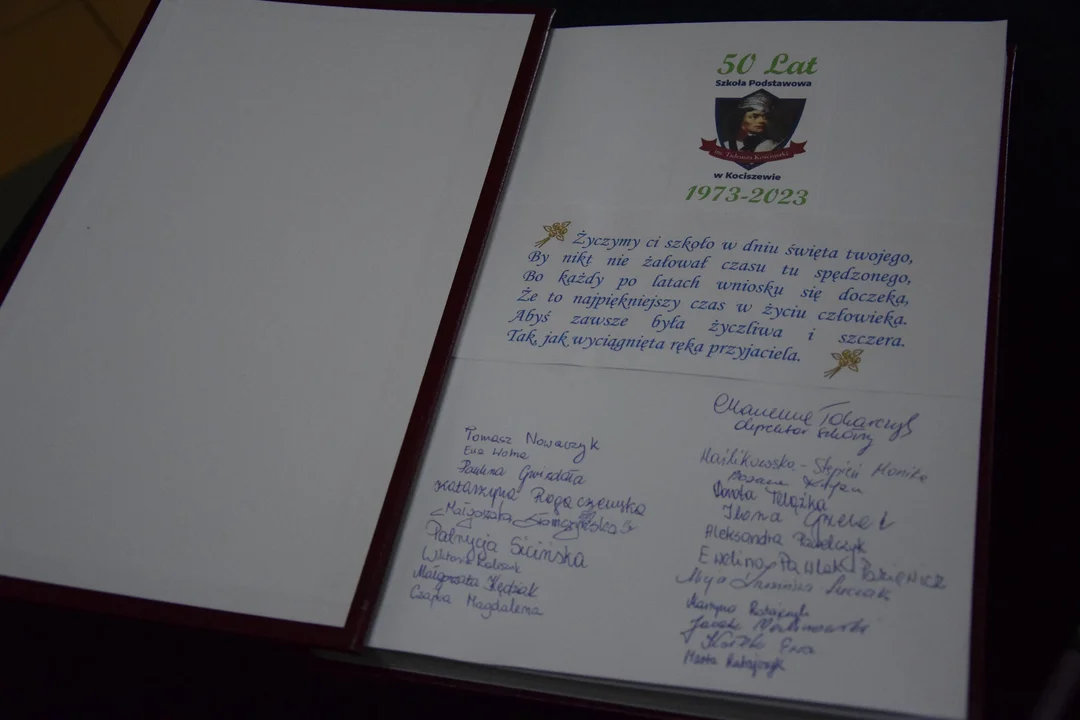 50 Lat
Szkoła Podstawowa
im. Tadeusza Kościuszki
w Kociszewie
1973-2023
Życzymy ci szkoło w dniu święta twojego,
By nikt nie żałował czasu tu spędzonego,
Bo każdy po latach wniosku się doczeka,
Że to najpiękniejszy czas w życiu człowieka.
Abyś zawsze była życzliwa i szczera.
Tak, jak wyciągnięta ręka przyjaciela.
Tomasz Nowaczyk
Ewa Wolna
Paulina Gwizdała
Katarzyna Rogaczewska
Małgorzata
Patrycja Sicińska
Wiktoria
Małgorzata Kędziak
Czapka Magdalena
Tokarczyk
dyrektor szkoły
Stępień Monika
Dorota Telążka
Ilona
Aleksandra Pawelczyk
Ewelina Pawlak
Martyna Ratajczyk
Jacek Malinowski
Ewa
Marta Ratajczyk